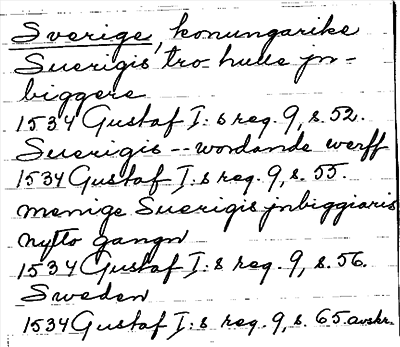 Sverige, konungarike
Suerigis tro hulle jn-
biggere
1534 Gustaf I:s reg. 9, s. 52.
Suerigis -- wordande werff
1534 Gustaf I:s reg. 9, s. 55.
menige Suerigis jnbiggiaris
nytto gangn
1534 Gustaf I:s reg. 9, s. 56.
Sweden
1534 Gustaf I:s reg. 9, s. 65. avskr.